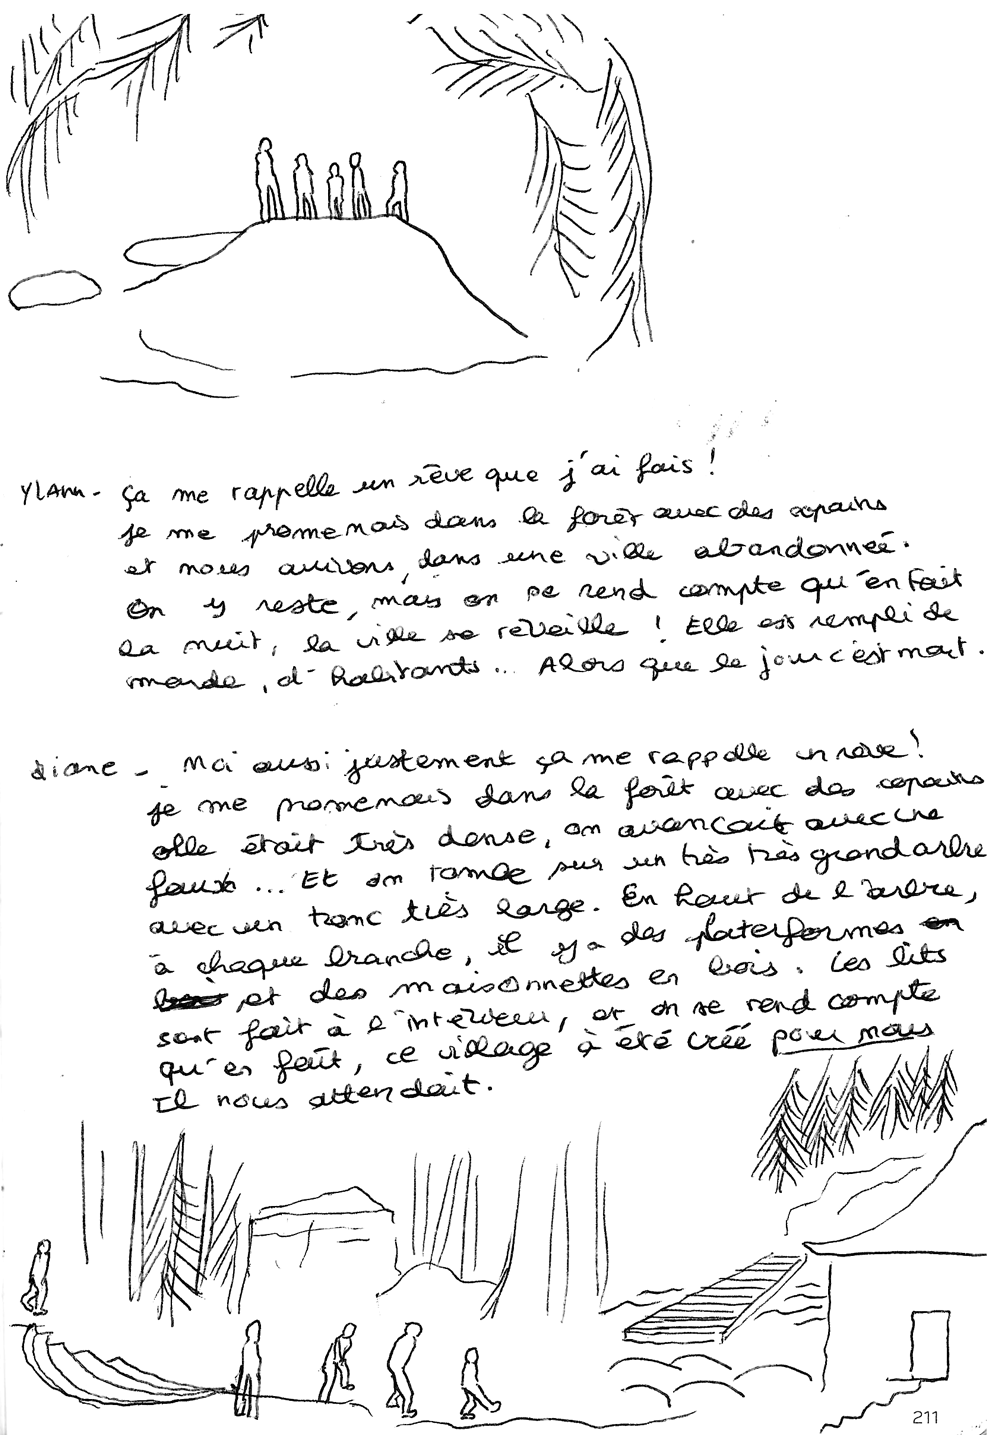 Ylann - ça me rappelle un rêve que j'ai fais !
je me promenais dans la forêt avec des copains
et nous arrivons, dans une ville abandonneé.
on y reste, mais on se rend compte qu'en fait
la nuit, la ville se réveille ! Elle est rempli de
monde, d'habitants... Alors que le jour c'est mort.
Diane - Moi aussi justement ça me rappelle un rêve !
je me promenais dans la forêt avec des copains
elle était très dense, on avançait avec une
faux ... Et on tombe sur un très très grand arbre
avec un tronc très large. En haut de l'arbre,
à chaque branche, il y a des plateformes en
bois et des maisonnettes en bois. Les lits
sont fait à l'intérieur, et on se rend compte
qu'en fait, ce village à été créé pour nous
Il nous attendait.
211